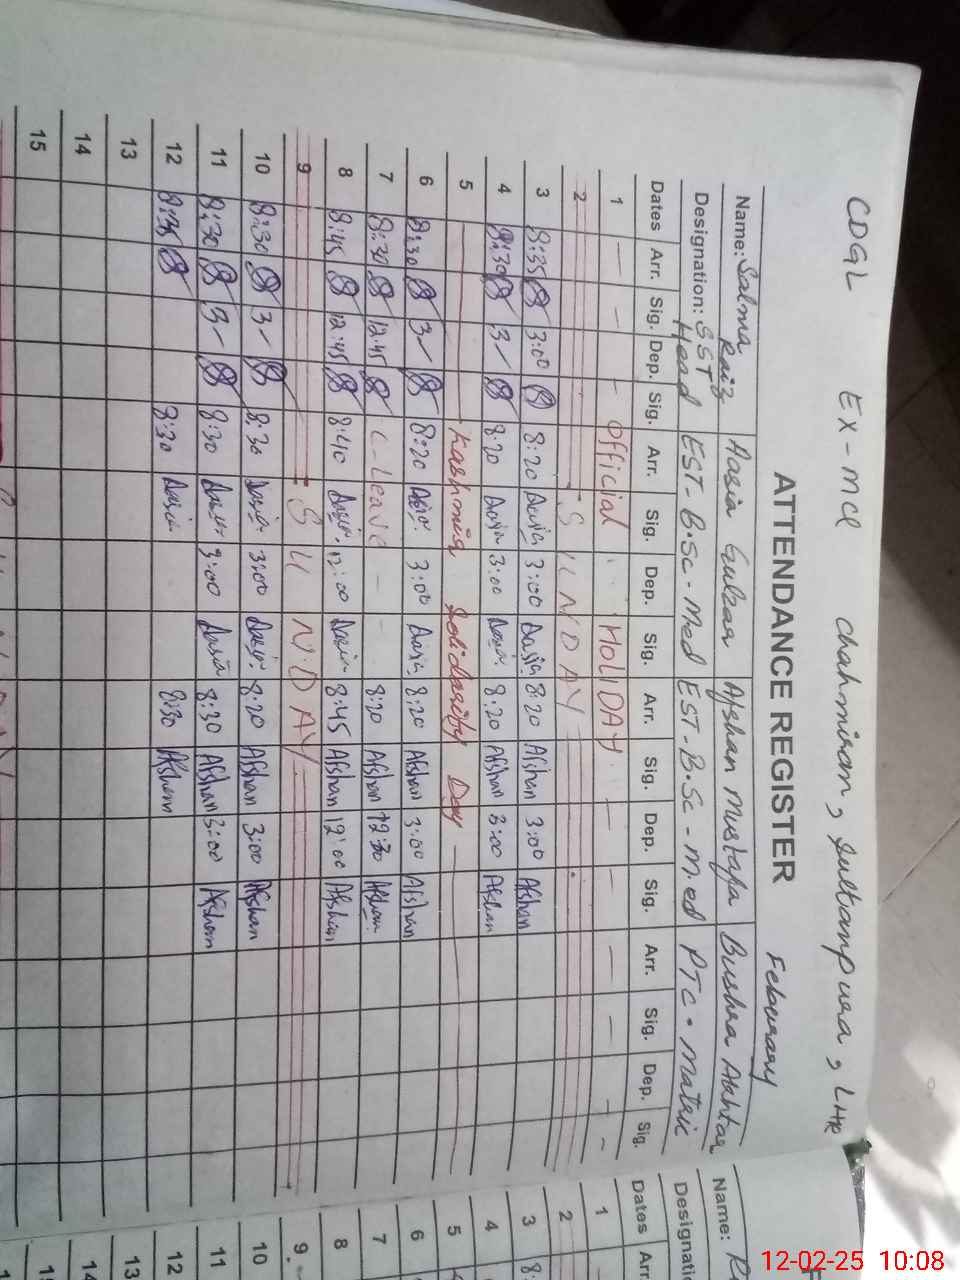 CDGL EX-MCL chahmiran, sultanpura, LHR
ATTENDANCE REGISTER February
Name: Salma Raiz Aasia Gulzar Afshan Mustafa Bushra Akhtar
Designation: SST Head EST-B.Sc-Med EST-B.Sc-M.ed PTC. Matric
Dates Arr. Sig. Dep. Sig. Arr. Sig. Dep. Sig. Arr. Sig. Dep. Sig. Arr. Sig. Dep. Sig.
1 — — — Official HoliDAY — — — — — —
2 SUNDAY
3 8:35 3:00 8:20 Aasia 3:00 Aasia 8:20 Afshan 3:00 Afshan
4 8:30 3 8:20 Aasia 3:00 Aasia 8:20 Afshan 3:00 Afshan
5 Kashmir Solidarity Day
6 8:30 3 8:20 Aasia 3:00 Aasia 8:20 Afshan 3:00 Afshan
7 8:30 12:45 C-Leave - - 8:20 Afshan 12:30 Afshan
8 8:45 12:45 8:40 Aasia 12:00 Aasia 8:45 Afshan 12:00 Afshan
9 SUNDAY
10 8:30 3 8:30 Aasia 3:00 Aasia 8:20 Afshan 3:00 Afshan
11 8:30 3 8:30 Aasia 3:00 Aasia 8:30 Afshan 3:00 Afshan
12 8:30 Aasia 8:30 Afshan
13
14
15
Name: R
Designati
Dates Arr
1
2
3 8:
4
5
6
7
8
9
10
11
12
13
14
15
12-02-25 10:08